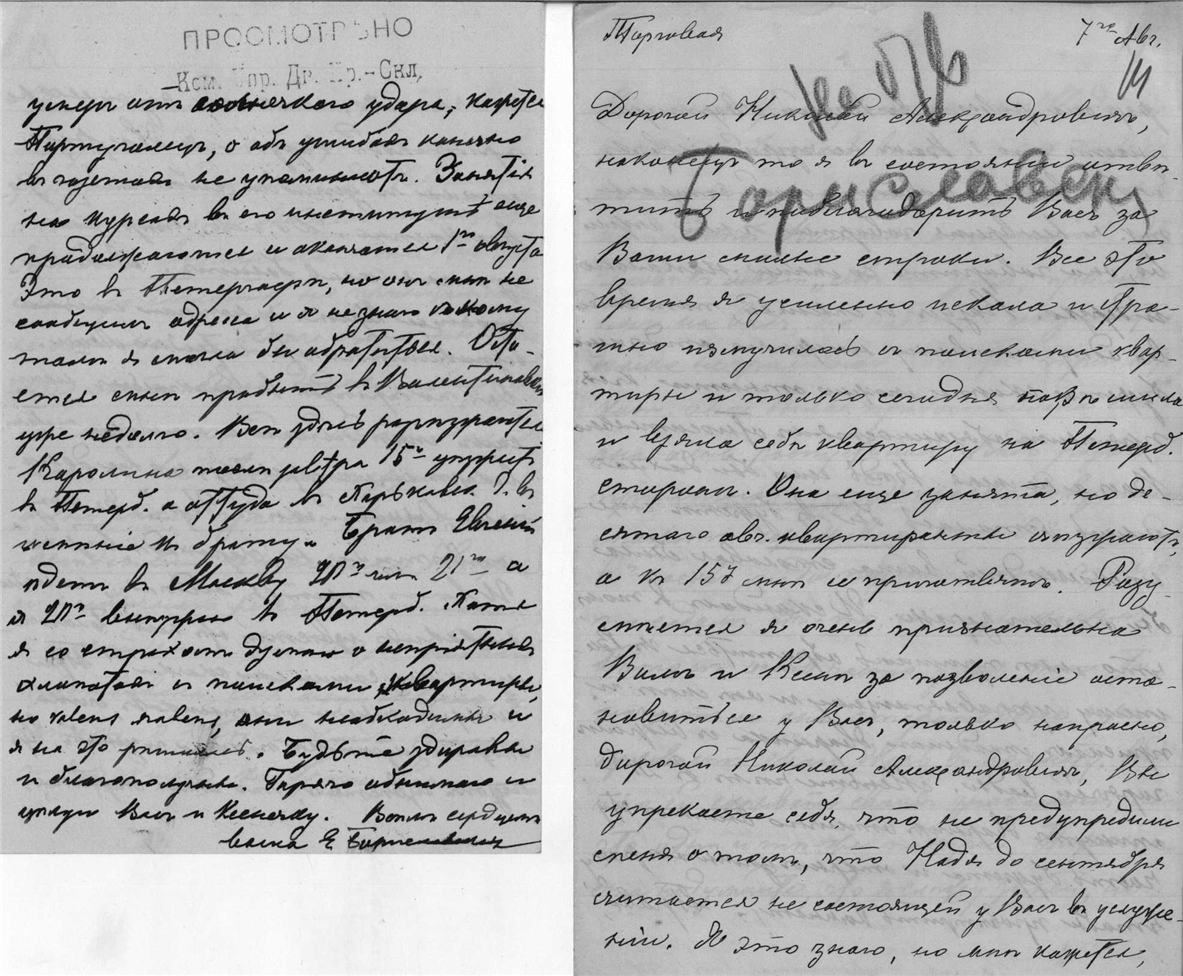 ПРОСМОТРѢНО
умеръ отъ солнечнаго удара, кажется
Португалецъ, о объ ушибахъ конечно
въ газетахъ не упоминаютъ. Занятія
на курсахъ въ его институтѣ еще
продолжаются и окончатся 1го августа
Это въ Петергофѣ, но онъ мнѣ не
сообщилъ адреса и я не знаю къ кому
тамъ я могла бы обратиться. Оста-
ется мнѣ пробыть въ Валентиновкѣ
уже недолго. Всѣ здѣсь разъѣзжаются
Каролина после завтра 15го уѣзжаетъ
въ Петерб. а оттуда въ Харьковск. г. въ
имѣніе къ брату. Братъ Евгеній
ѣдетъ въ Москву 20го или 21го а
я 20го выѣзжаю въ Петерб. Хотя
я со страхомъ думаю о непріятныхъ
хлопотахъ и поискахъ квартиры,
но volens nolens, они необходимы и
я на это рѣшилась. Будьте здоровы
и благополучны. Горячо обнимаю и
цѣлую Васъ и Ксенечку. Всѣмъ сердцемъ
ваша Е Бориславская
Торговая 7го Авг.
На обѣ
Бориславск
Дорогой Николай Александровичъ,
наконецъ то я въ состояніи отвѣ-
тить и поблагодарить Васъ за
Ваши милые строки. Все это
время я усиленно искала и стра-
шно измучилась съ поисками квар-
тиры и только сегодня порѣшила
и взяла себѣ квартиру на Петерб.
сторонѣ. Она еще занята, но де-
сятаго авг. квартиранты выѣзжаютъ,
а къ 15му мнѣ ее приготовятъ. Разу-
мѣется я очень признательна
Вамъ и Ксеніи за позволеніе оста-
новиться у Васъ, только напрасно,
дорогой Николай Александровичъ, Вы
упрекаете себя, что не предупредили
меня о томъ, что Надя до сентября
считается не состоящей у Васъ въ услуже-
ніи. Я это знаю, но мнѣ кажется,